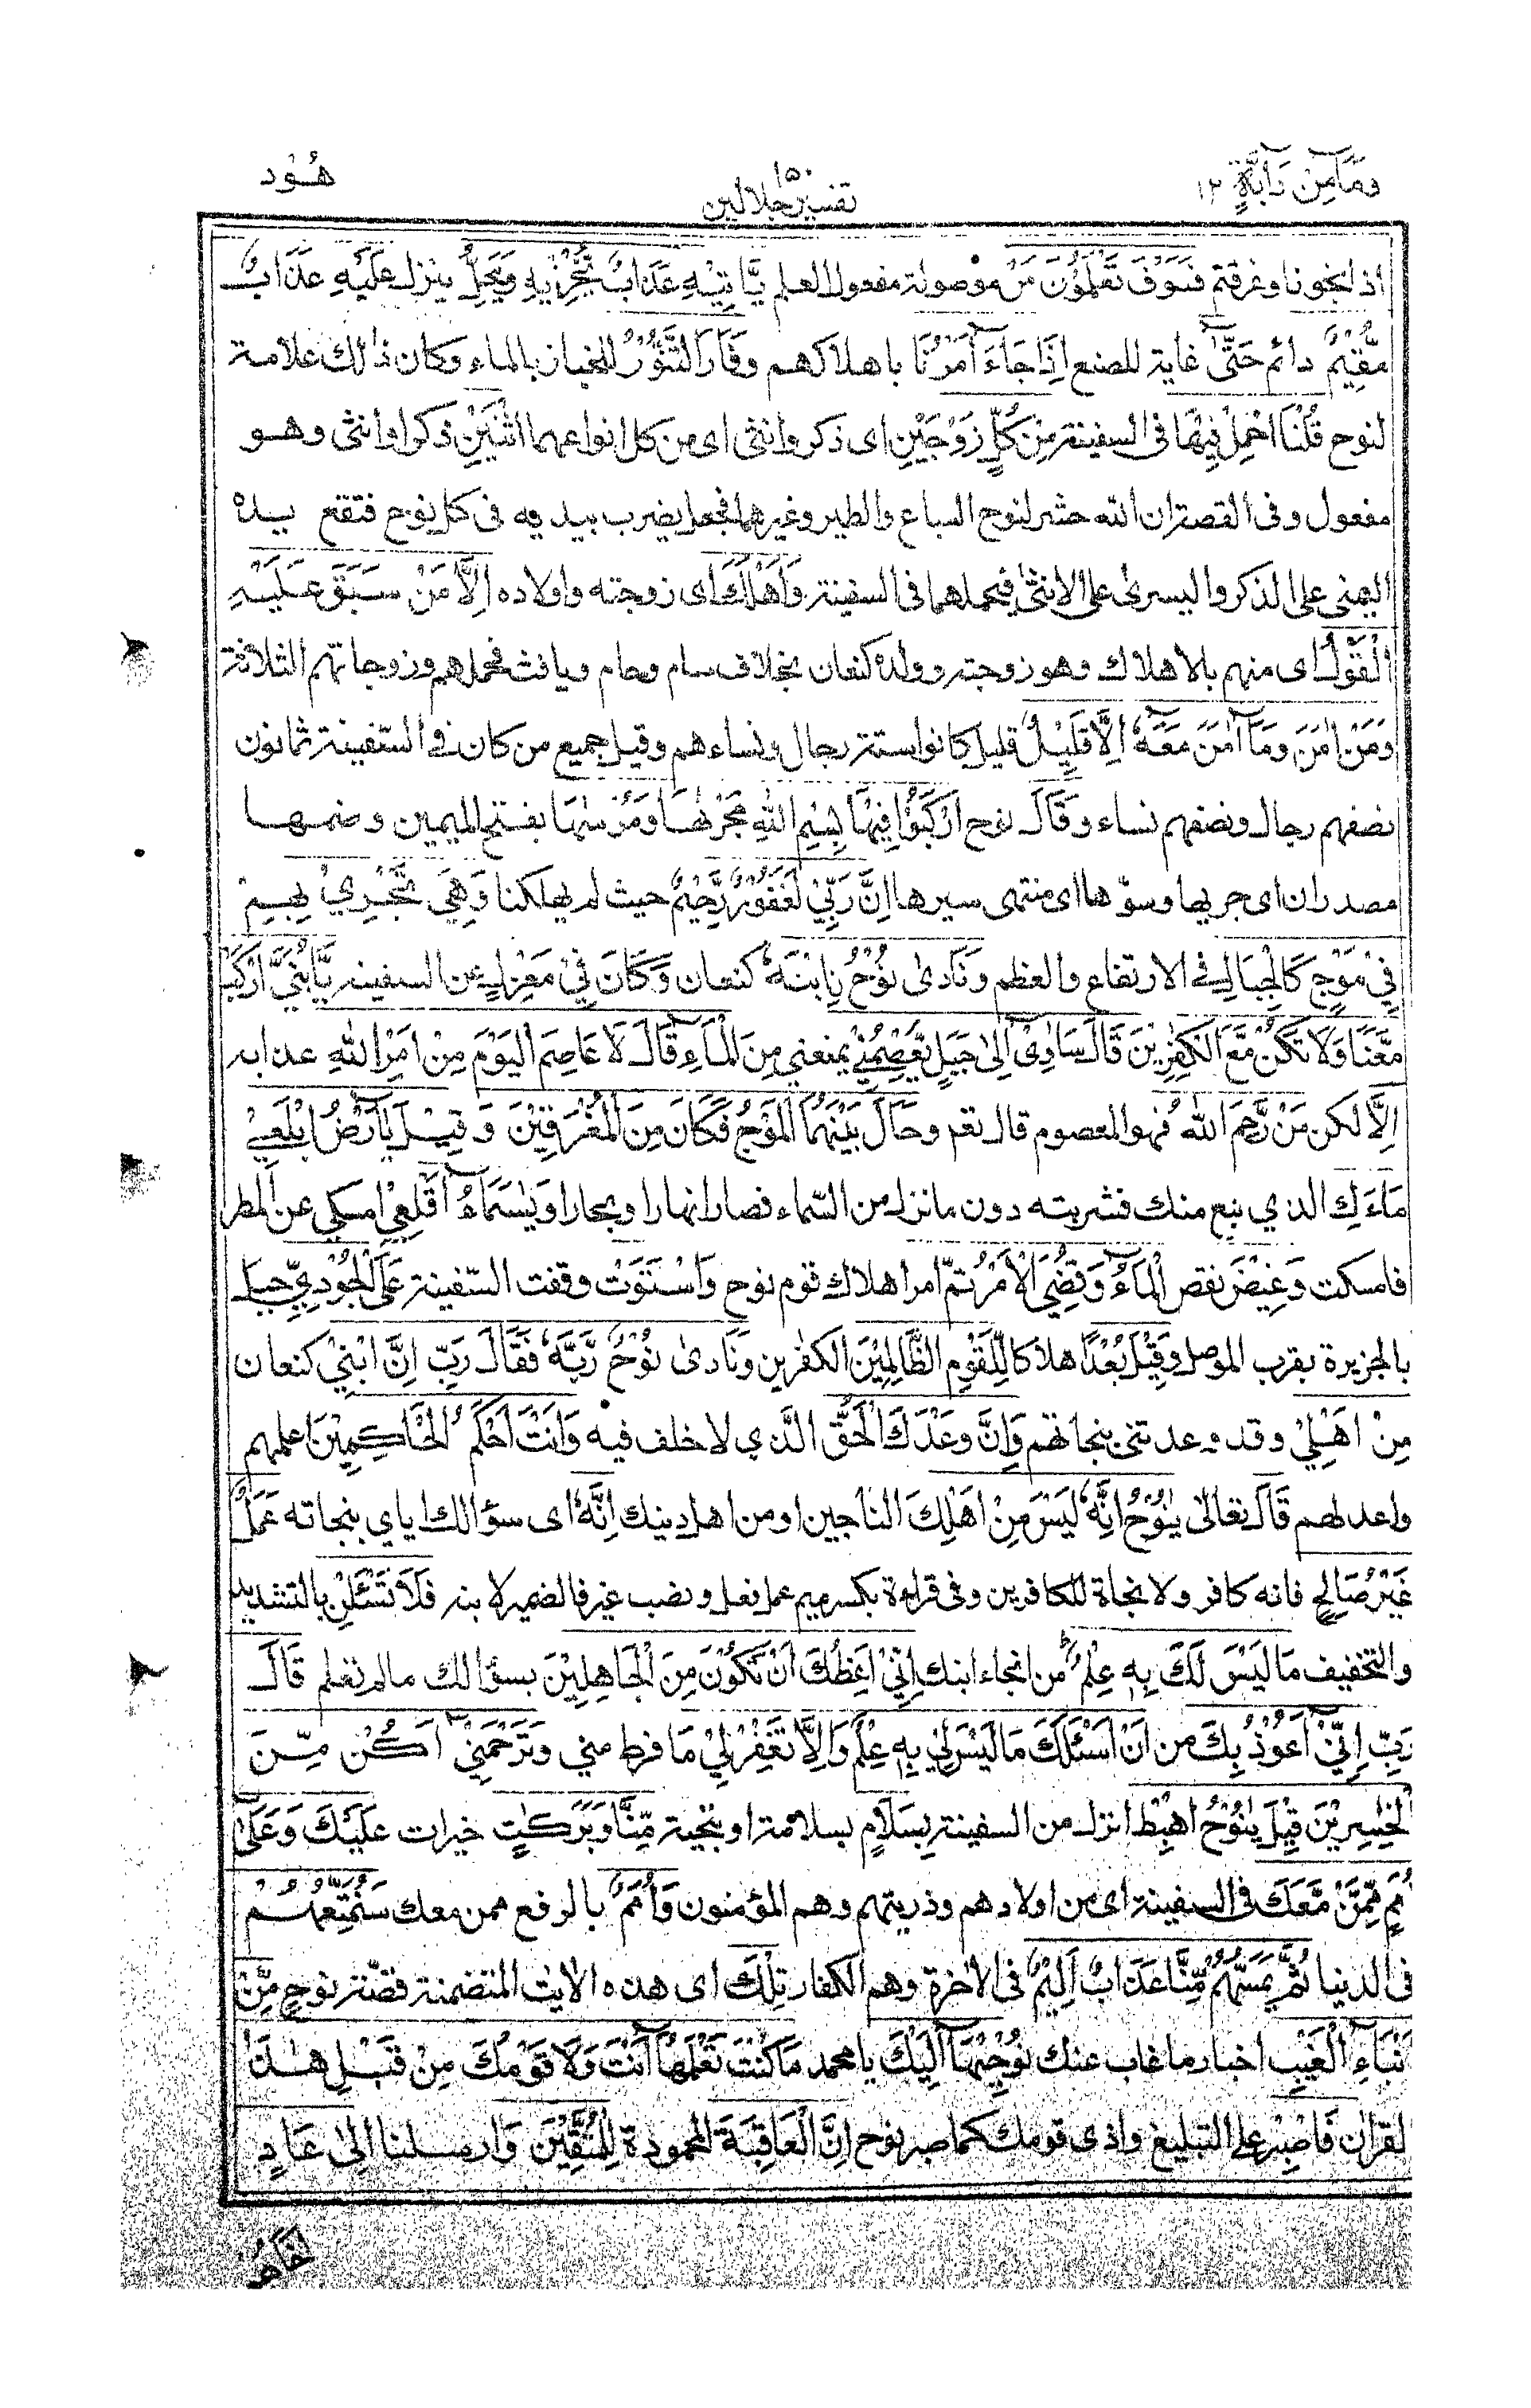 وَمَا مِن دَابَّةٍ ١٢
١٥٠
تفسير جلالين
هُود
اذا نجونا وغرقتم فَسَوْفَ تَعْلَمُوْنَ مَنْ موصولة مفعول العلم يَّاْتِيْهِ عَذَابٌ يُّخْزِيْهِ وَيَحِلُّ ينزل عَلَيْهِ عَذَابٌ
مُّقِيْمٌ دائم حَتّٰى غاية للصنع اِذَا جَآءَ اَمْرُنَا باهلاكهم وَفَارَ التَّنُّوْرُ للخباز بالماء وكان ذلك علامة
لنوح قُلْنَا احْمِلْ فِيْهَا فى السفينة مِنْ كُلٍّ زَوْجَيْنِ اى ذكر وانثى اى من كل انواعهما اثْنَيْنِ ذكرا وانثى وهو
مفعول وفى القصة ان الله حشر لنوح السباع والطير وغيرهما فجعل يضرب بيديه فى كل نوح فتقع يده
اليمنى على الذكر واليسرى على الانثى فيحملهما فى السفينة وَاَهْلَكَ اى زوجته واولاده اِلَّا مَنْ سَبَقَ عَلَيْهِ
الْقَوْلُ اى منهم بالاهلاك وهو زوجته وولده كنعان بخلاف سام وحام ويافث فحملهم وزوجاتهم الثلاثة
وَمَنْ اٰمَنَ وَمَآ اٰمَنَ مَعَهٗٓ اِلَّا قَلِيْلٌ قليل كانوا ستة رجال ونساءهم وقيل جميع من كان فى السفينة ثمانون
نصفهم رجال ونصفهم نساء وَقَالَ نوح ارْكَبُوْا فِيْهَا بِسْمِ اللّٰهِ مَجْرٰىهَا وَمُرْسٰىهَا بفتح الميمين وضمها
مصدران اى جريها وسوّها اى منتهى سيرها اِنَّ رَبِّيْ لَغَفُوْرٌ رَّحِيْمٌ حيث لم يهلكنا وَهِيَ تَجْرِيْ بِهِمْ
فِيْ مَوْجٍ كَالْجِبَالِ فى الارتفاع والعظم وَنَادٰى نُوْحُ نِابْنَهٗ كنعان وَكَانَ فِيْ مَعْزِلٍ عن السفينة يّٰبُنَيَّ ارْكَبْ
مَّعَنَا وَلَا تَكُنْ مَّعَ الْكٰفِرِيْنَ قَالَ سَاٰوِيْٓ اِلٰى جَبَلٍ يَّعْصِمُنِيْ يمنعنى مِنَ الْمَآءِ قَالَ لَا عَاصِمَ الْيَوْمَ مِنْ اَمْرِ اللّٰهِ عذابه
اِلَّا لكن مَنْ رَّحِمَ اللّٰهُ فهو المعصوم قال تعم وَحَالَ بَيْنَهُمَا الْمَوْجُ فَكَانَ مِنَ الْمُغْرَقِيْنَ وَقِيْلَ يٰٓاَرْضُ ابْلَعِيْ
مَآءَكِ الذي نبع منك فشربته دون ما نزل من السّماء فصار انهارا وبحارا وَيٰسَمَآءُ اَقْلِعِيْ امسكي عن المطر
فامسكت وَغِيْضَ نقص الْمَآءُ وَقُضِيَ الْاَمْرُ تمّ امر اهلاك قوم نوح وَاسْتَوَتْ وقفت السّفينة عَلَى الْجُوْدِيِّ جبل
بالجزيرة بقرب الموصل وَقِيْلَ بُعْدًا هلاكا لِّلْقَوْمِ الظَّالِمِيْنَ الكفرين وَنَادٰى نُوْحٌ رَّبَّهٗ فَقَالَ رَبِّ اِنَّ ابْنِيْ كنعان
مِنْ اَهْلِيْ وقد وعدتنى بنجاتهم وَاِنَّ وَعْدَكَ الْحَقُّ الَّذي لا خلف فيه وَاَنْتَ اَحْكَمُ الْحَاكِمِيْنَ اعلمهم
واعدلهم قَالَ تعالى يٰنُوْحُ اِنَّهٗ لَيْسَ مِنْ اَهْلِكَ الناجين او من اهل دينك اِنَّهٗ اى سؤالك اياي بنجاته عَمَلٌ
غَيْرُ صَالِحٍ فانه كافر ولا نجاة للكافرين وفى قراءة بكسر ميم عمل فعل ونصب غير فالضمير لابنه فَلَا تَسْئَلْنِ بالتشديد
والتخفيف مَا لَيْسَ لَكَ بِهٖ عِلْمٌ من انجاء ابنك اِنِّيْٓ اَعِظُكَ اَنْ تَكُوْنَ مِنَ الْجَاهِلِيْنَ بسؤالك مالم تعلم قَالَ
رَبِّ اِنِّيْٓ اَعُوْذُ بِكَ من اَنْ اَسْئَلَكَ مَا لَيْسَ لِيْ بِهٖ عِلْمٌ وَاِلَّا تَغْفِرْ لِيْ ما فرط مني وَتَرْحَمْنِيْٓ اَكُنْ مِّنَ
الْخٰسِرِيْنَ قِيْلَ يٰنُوْحُ اهْبِطْ انزل من السفينة بِسَلَامٍ بسلامة او بتحية مِّنَّا وَبَرَكٰتٍ خيرات عَلَيْكَ وَعَلٰٓى
اُمَمٍ مِّمَّنْ مَّعَكَ فى السفينة اى من اولادهم وذريتهم وهم المؤمنون وَاُمَمٌ بالرفع ممن معك سَنُمَتِّعُهُمْ
فى الدنيا ثُمَّ يَمَسُّهُمْ مِّنَّا عَذَابٌ اَلِيْمٌ فى الاٰخرة وهم الكفار تِلْكَ اى هذه الاٰيٰت المتضمنة قصّة نوح مِنْ
اَنْبَآءِ الْغَيْبِ اخبار ما غاب عنك نُوْحِيْهَآ اِلَيْكَ يا محمد مَا كُنْتَ تَعْلَمُهَآ اَنْتَ وَلَا قَوْمُكَ مِنْ قَبْلِ هٰذَا
القران فَاصْبِرْ على التبليغ واذى قومك كما صبر نوح اِنَّ الْعَاقِبَةَ المحمودة لِلْمُتَّقِيْنَ وَارسلنا اِلٰى عَادٍ
اَخَاهُمْ